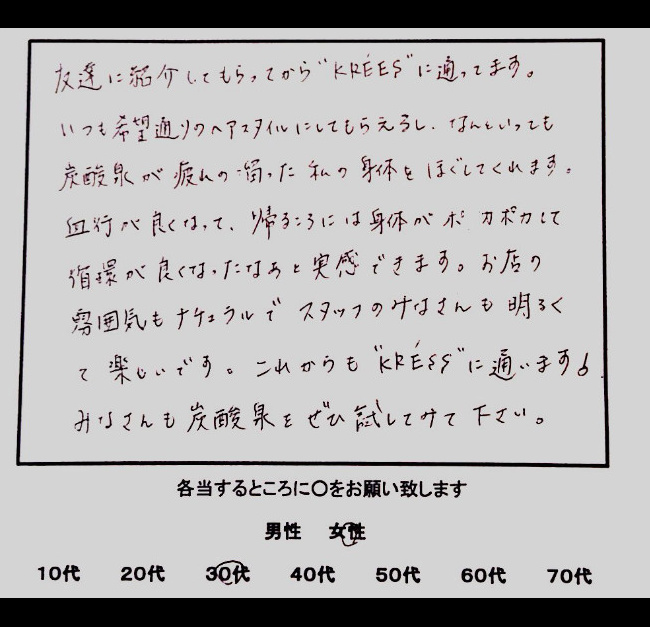 友達に紹介してもらってから"KRÉES"に通ってます。
いつも希望通りのヘアスタイルにしてもらえるし、なんといっても
炭酸泉が疲れの溜った私の身体をほぐしてくれます。
血行が良くなって、帰るころには身体がポカポカして
循環が良くなったなぁと実感できます。お店の
雰囲気もナチュラルでスタッフのみなさんも明るく
て楽しいです。これからも"KRÉSS"に通います♪
みなさんも炭酸泉をぜひ試してみて下さい。
各当するところに〇をお願い致します
男性 女性
10代 20代 30代 40代 50代 60代 70代